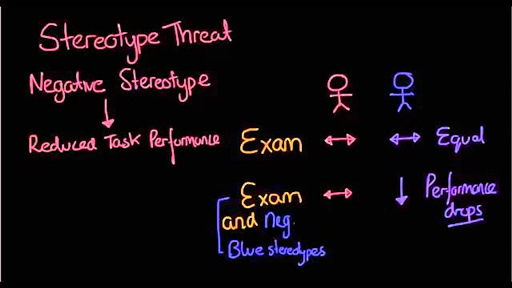 Stereotype Threat
Negative Stereotype
Reduced Task Performance
Exam
Equal
Exam
and Neg.
Blue stereotypes
Performance
drops